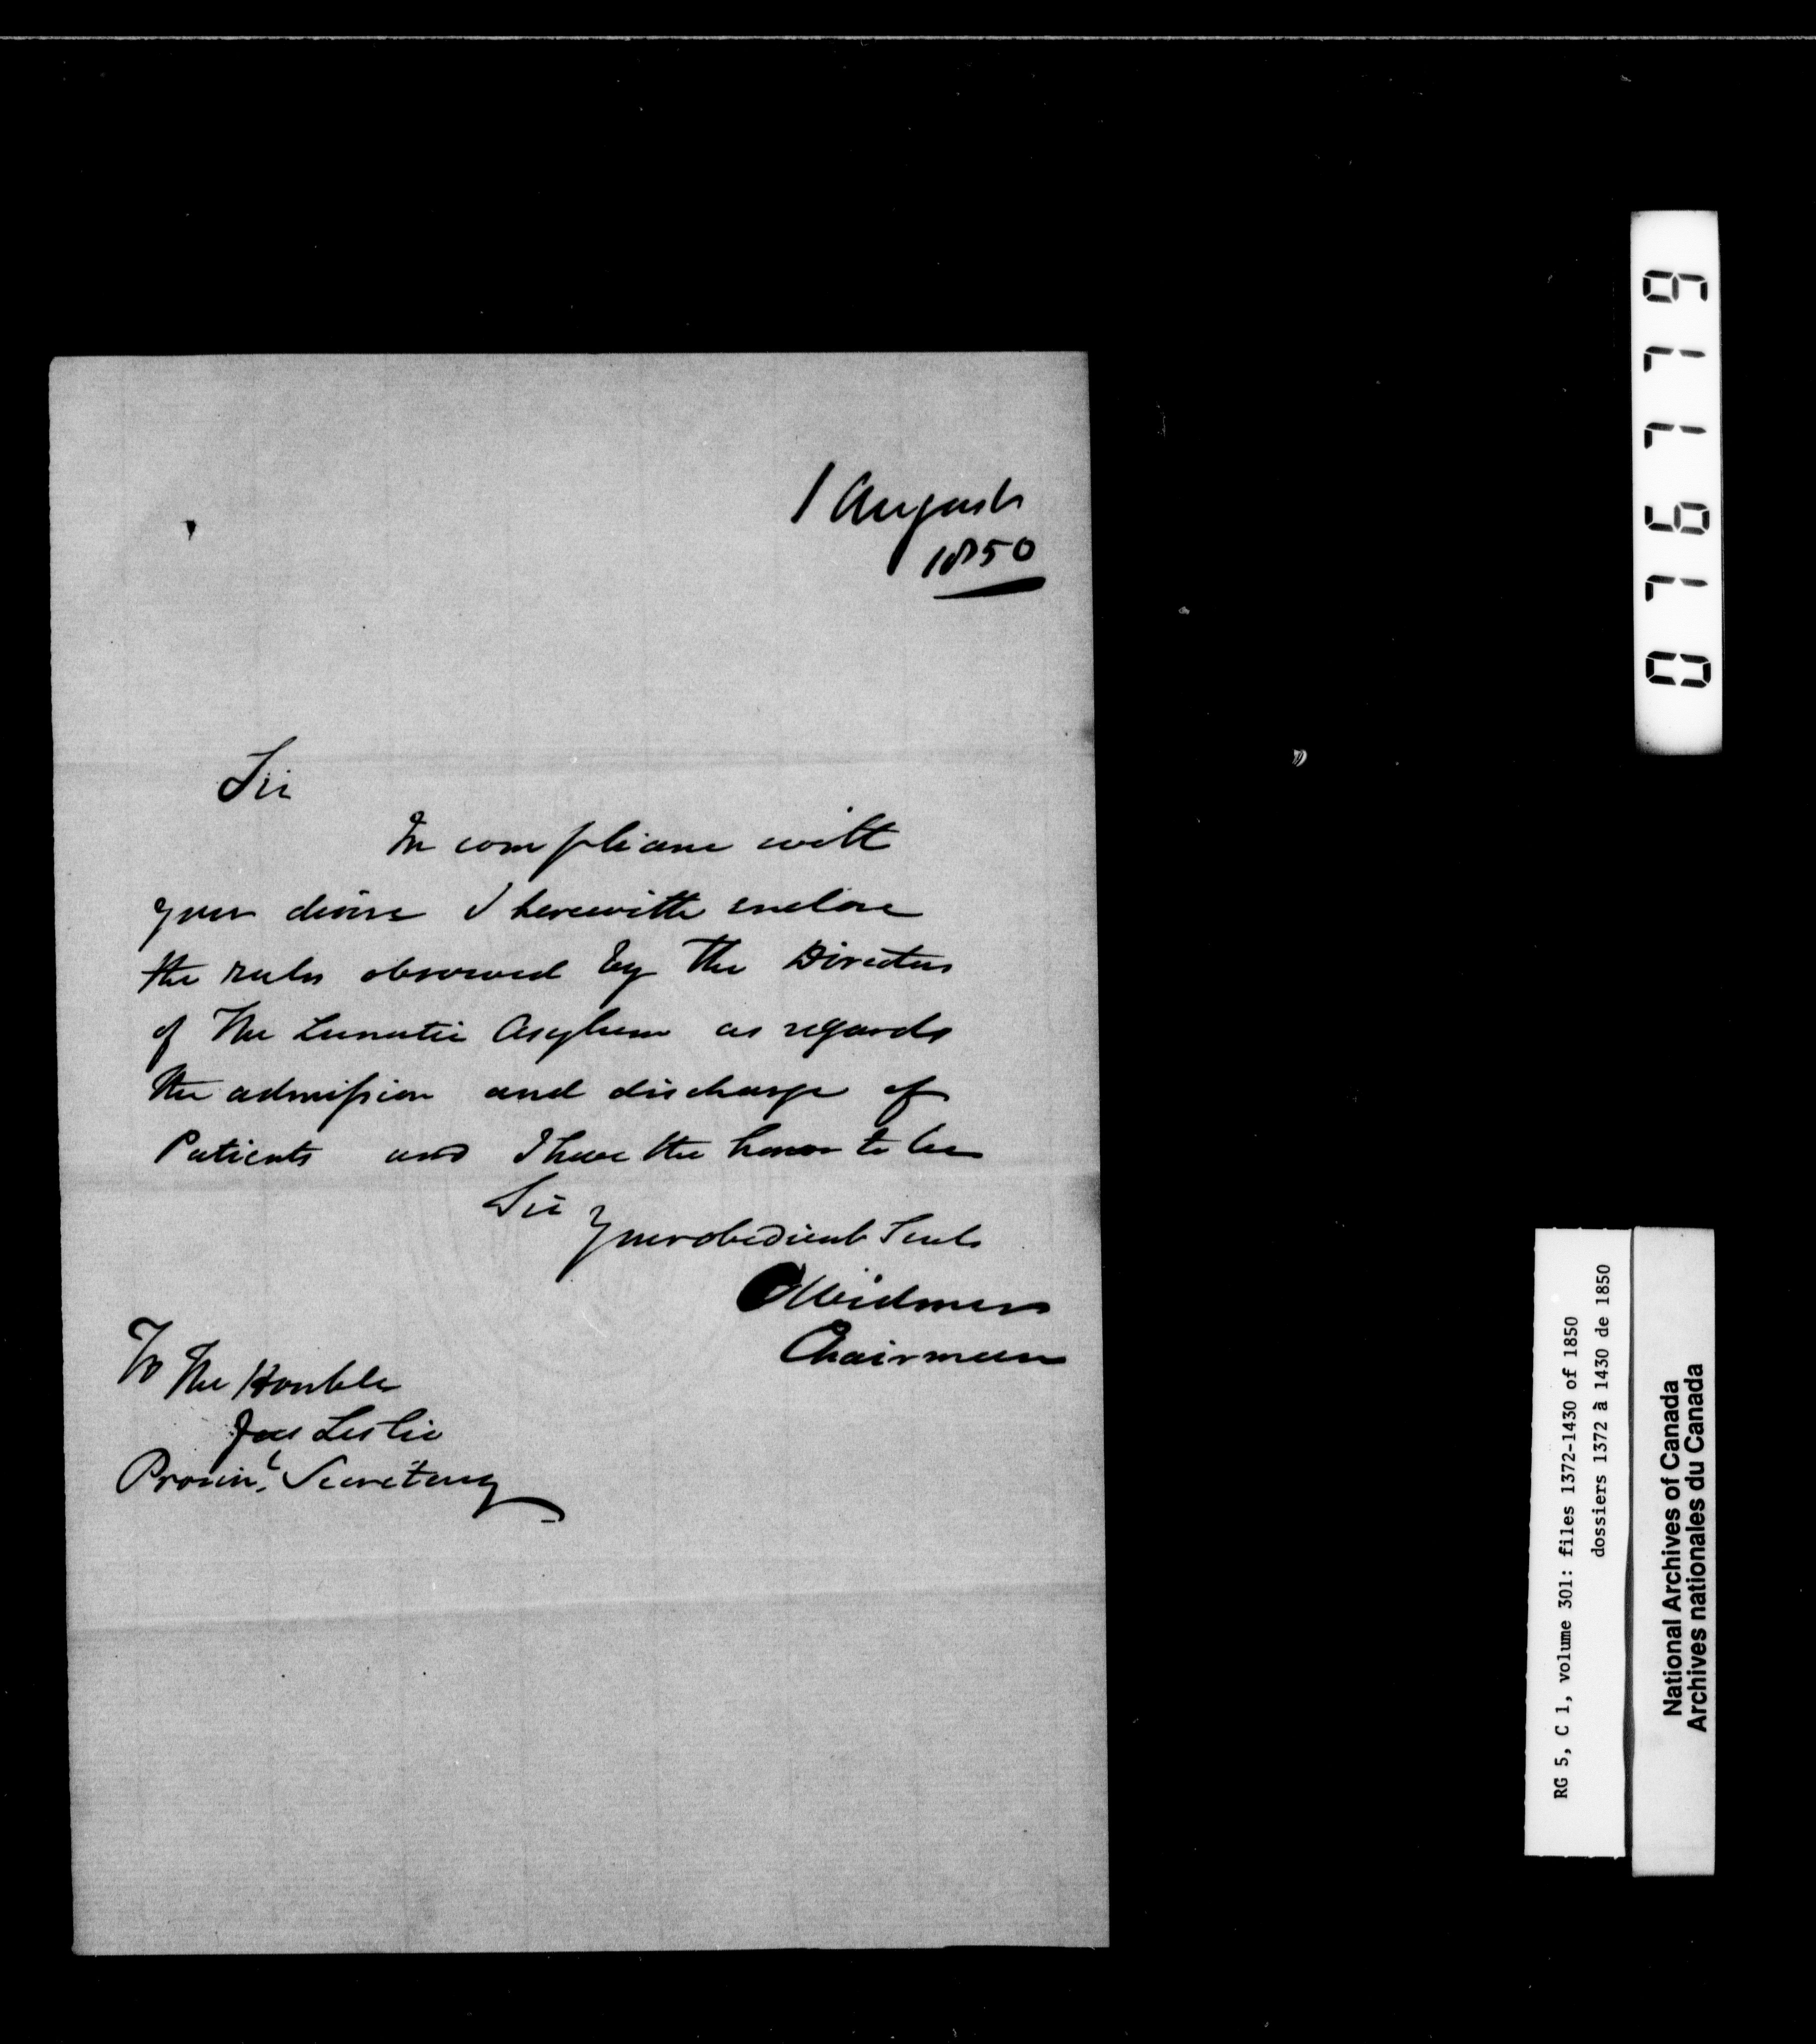 1 August
1850
Sir
In compliance with
your desire I herewith enclose
the rules observed by the Directors
of the Lunatic Asylum as regards
the admission and discharge of
Patients and I have the honor to be
Sir
Your obedient Servt
C Widmer
Chairman
To the Honble
Jas Leslie
Provinl. Secretary
076779
RG 5, C 1, volume 301: files 1372-1430 of 1850
dossiers 1372 à 1430 de 1850
National Archives of Canada
Archives nationales du Canada